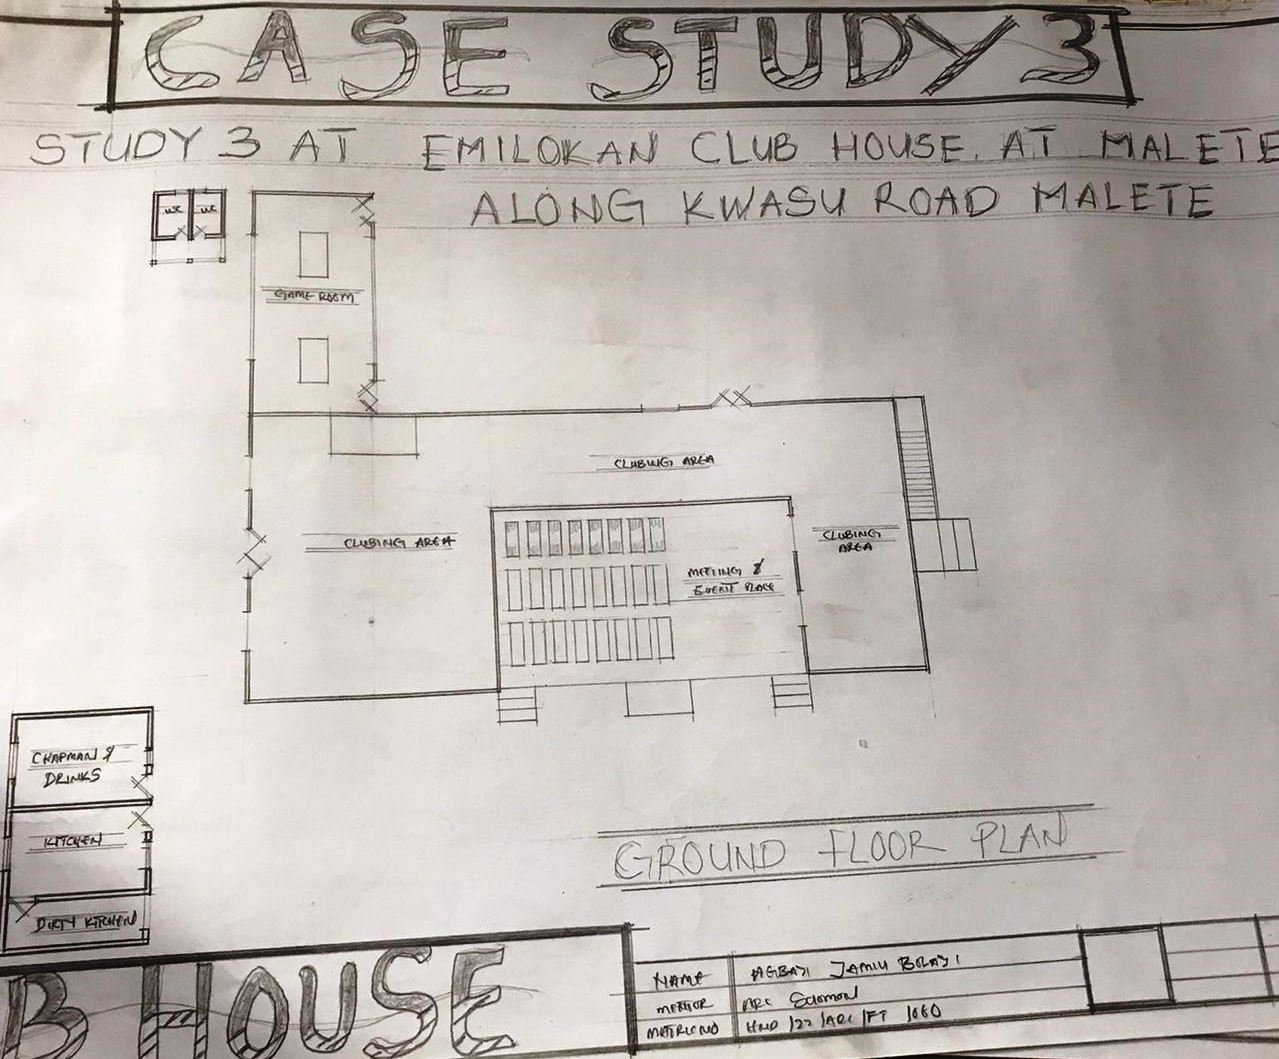 CASE STUDY 3
STUDY 3 AT EMILOKAN CLUB HOUSE. AT MALETE
ALONG KWASU ROAD MALETE
WC WC
GAME ROOM
CLUBING AREA
CLUBING AREA
CLUBING
AREA
MEETING &
EVENT PLACE
CHAPMAN &
DRINKS
KITCHEN
DIRTY KITCHEN
GROUND FLOOR PLAN
B HOUSE
NAME AGBAJI JAMIU BOLAJI
MENTOR ARC SOLOMON
MATRIC NO HND /22 /ARC /FT /060